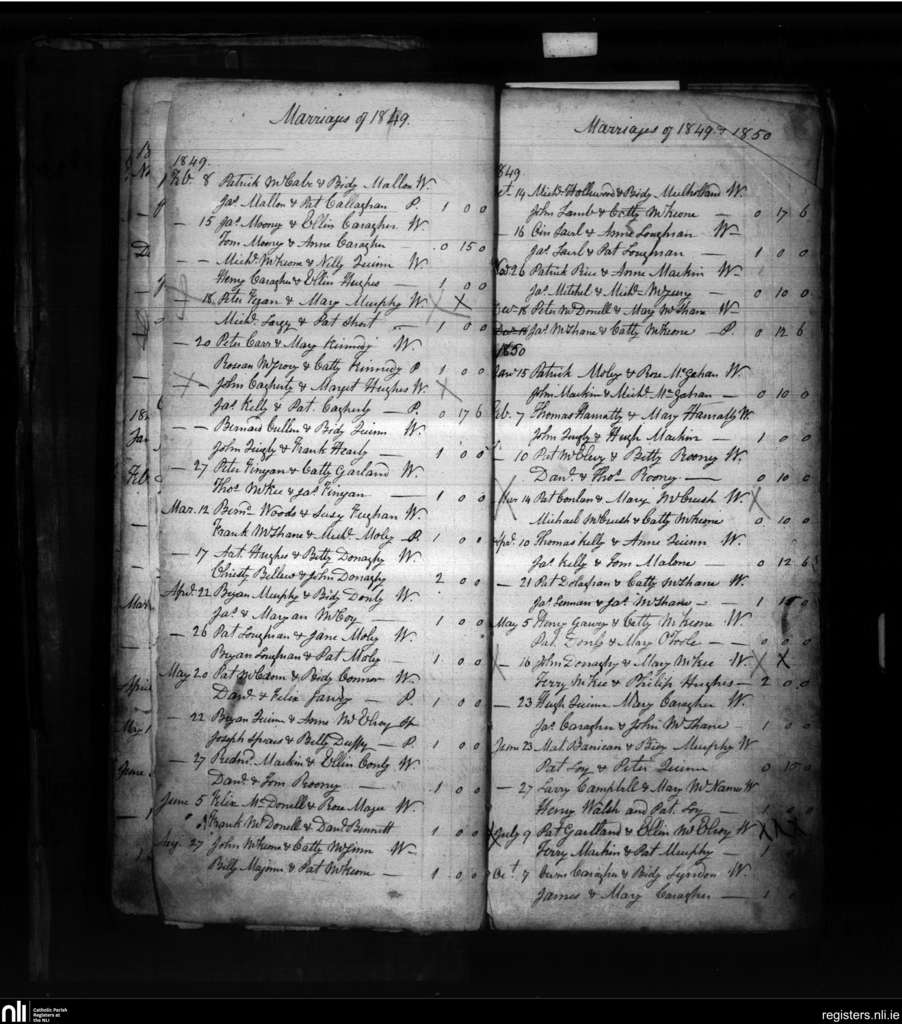 Marriages of 1849.
1849.
Feb. 8 Patrick McCabe & Bidy Mallon W.
Jas. Mallon & Pat Callaghan P. 1 0 0
— 15 Jas. Moony & Ellin Caragher W.
Tom Moony & Anne Caragher — 0 15 0
— — Michl. McKeone & Nelly Quinn W.
Henry Caragher & Ellen Hughes — 1 0 0
— 18 Peter Fegan & Mary Murphy W. X
Michl. & Pat Short — 1 0 0
— 20 Peter Carr & Mary Kennedy W.
& Catty Kennedy P 1 0 0
X — John & Margret Hughes W. X
Jas. Kelly & Pat. — P. 0 17 6
— — Bernard Cullen & Bidy Quinn W.
John & Frank Hearty — 1 0 0
— 27 Peter Finyan & Catty Garland W.
Thos. McKee & Jas. Finyan — 1 0 0
Mar. 12 Bernd. Woods & Susy W.
Frank McShane & Michl. Moley — P. 1 0 0
— 17 Hughes & Betty Donaghy W.
Christy Bellew & John Donaghy 2 0 0
Aprl. 22 Bryan Murphy & Bidy Donly W.
Jas. & Maryan McCoy — 1 0 0
— 26 Pat Loughran & Jane Moley W.
Bryan Loughran & Pat Moley — 1 0 0
May 20 Pat & Bidy Connor W.
Danl. & Felix — P. 1 0 0
— 22 Bryan Quinn & Anne McElroy
Joseph & Betty Duffy — P. 1 0 0
— 27 Redmd. Mackin & Ellin Conly W.
Danl. & Tom Roony — 1 0 0
June 5 Felix McDonell & Rose Magee W.
Frank McDonell & Danl. Bennett 1 0 0
Aug. 27 John McKeone & Catty McGinn W —
Billy & Pat McKeone — 1 0 0
Marriages of 1849 & 1850
1849
Oct. 14 Michl. Hollywood & Bidy Mulholland W.
John Lamb & Catty McKeone — 0 17 6
— 16 & Anne Loughran W —
Jas. & Pat Loughran — 1 0 0
Nov 26 Patrick Rice & Anne Mackin W —
Jas. Mitchel & Michl. — 0 10 0
Dec. 18 Peter McDonell & Mary McShane W —
Jas. McShane & Catty McKeone — P. 0 12 6
1850
Jan 15 Patrick Moley & Rose McGahan W.
John Mackin & Michl. McGahan — 0 10 0
Feb. 7 Thomas Hanratty & Mary Hanratty W.
John & Hugh Mackin — 1 0 0
— 10 Pat McElroy & Betty Roony W.
Danl. & Thos. Roony — 0 10 0
X Mar 14 Pat Conlan & Mary McCreesh W X
Michael McCreesh & Catty McKeone 0 10 0
Aprl. 10 Thomas Kelly & Anne Quinn W.
Jas. Kelly & Tom Malone — 0 12 6
— 21 Pat & Catty McShane W.
Jas. & Jas. McShane — 1 10 0
May 5 Henry & Catty McKeone W
Pat. Donly & Mary O'Toole — — 0 0 0
— 16 John Donaghy & Mary McKee W. X X
Terry McKee & Philip Hughes — 2 0 0
— 23 Hugh Quinn Mary Caragher W.
Jas. Caragher & John McShane — 1 0
June 23 Banican & Bidy Murphy W
Pat Loy & Peter Quinn 0 15 0
— 27 Larry Campbell & Mary McNamee W
Henry Walsh and Pat Loy — 1 0
X July 9 Pat Gartland & Ellin McElroy W XXX
Terry Mackin & Pat Murphy — 1
Oct. 7 Owen Caragher & Bidy Lyndon W.
James & Mary Caragher — 1 0
nli
Catholic Parish
Registers at
the NLI
registers.nli.ie